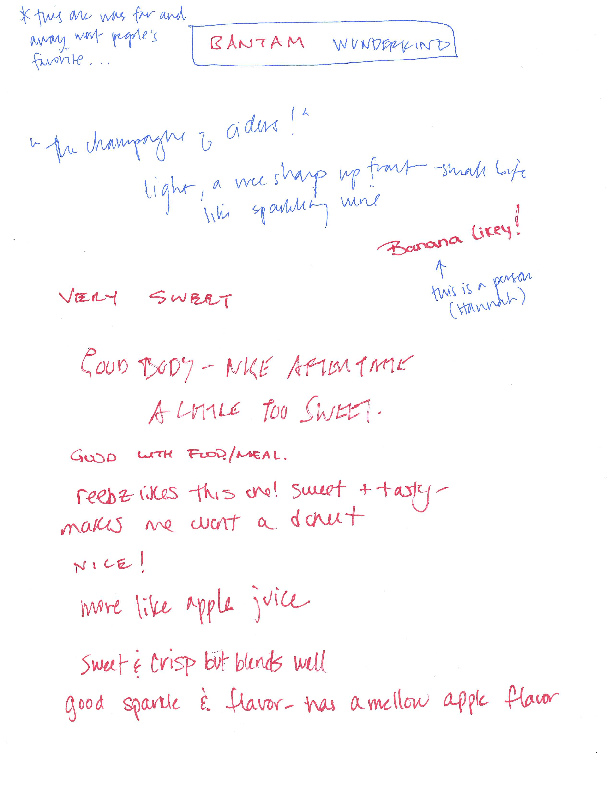 * this one was far and
away most people's
favorite...
BANTAM WUNDERKIND
"the champagne of ciders!"
light, a nice sharp up front - small bite
like sparkling wine
Banana Likey!
↑
this is a person
(Hannah)
VERY SWEET
GOOD BODY - NICE AFTERTASTE
A LITTLE TOO SWEET.
GOOD WITH FOOD/MEAL.
reebz likes this one! sweet + tasty -
makes me want a donut
NICE!
more like apple juice
sweet & crisp but blends well
good sparkle & flavor - has a mellow apple flavor